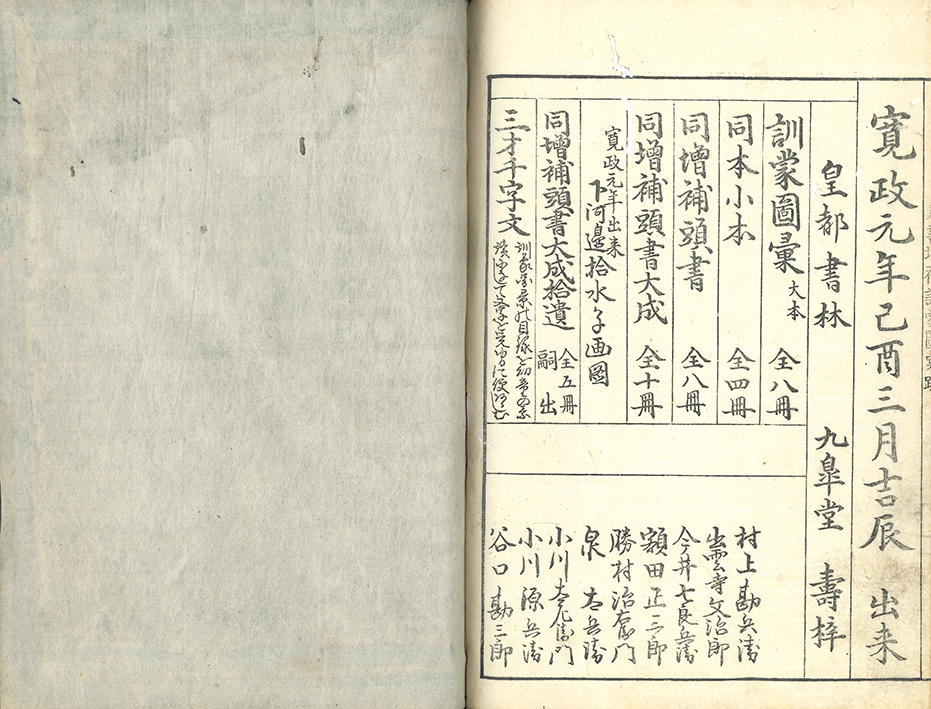 寛政元年己酉三月吉辰 出来
皇都書林 九皐堂 壽梓
訓蒙圖彙 大本 全八冊
同本小本 全四冊
同増補頭書 全八冊
同増補頭書大成 全十冊
寛政元年出来
下河邉拾水子画圖
同増補頭書大成拾遺 全五冊
嗣出
三才千字文
村上勘兵衛
出雲寺文治郎
今井七良兵衛
額田正三郎
勝村治右衛門
泉太兵衛
小川太左衛門
小川源兵衛
谷口勘三郎